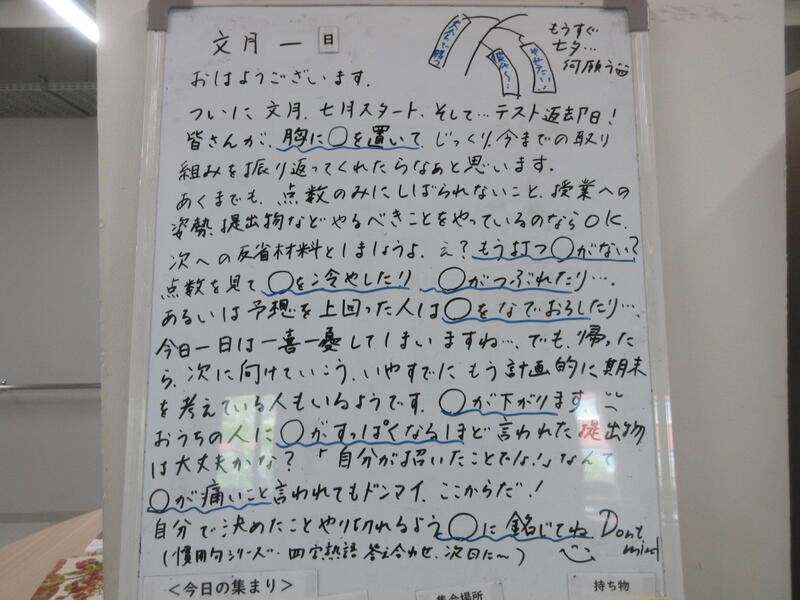 文月一日
もうすぐ
七夕…
何願う
テストで勝つ
やせたい!
おはようございます.
ついに文月.七月スタート.そして…テスト返却日!
皆さんが、胸に○を置いて、じっくり今までの取り
組みを振り返ってくれたらなぁと思います.
あくまでも、点数のみにしばられないこと、授業への
姿勢、提出物などやるべきことをやっているのならOK.
次への反省材料としましょうよ.え?もう打つ○がない?
点数を見て○を冷やしたり ○がつぶれたり….
あるいは予想を上回った人は○をなでおろしたり….
今日一日は一喜一憂してしまいますね…でも、帰った
ら、次に向けていこう.いやすでにもう計画的に期末
を考えている人もいるようです.○が下がります.
おうちの人に○がすっぱくなるほど言われた提出物
は大丈夫かな?「自分が招いたことでな!」なんて
○が痛いこと言われてもドンマイ.ここからだ!
自分で決めたことやり切れるよう○に銘じてね Dont mind
(慣用句シリーズ.四字熟語 答え合わせ、次日に〜)
<今日の集まり>
集合場所
持ち物